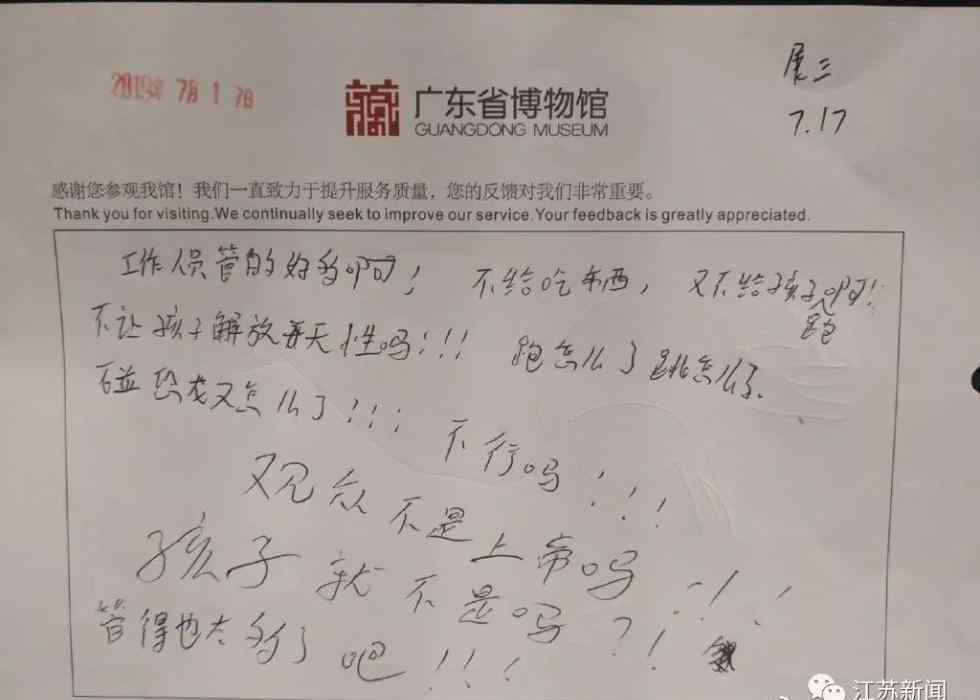 2019年7月17日
展三
广东省博物馆
GUANGDONG MUSEUM
7.17
感谢您参观我馆!我们一直致力于提升服务质量,您的反馈对我们非常重要。
Thank you for visiting.We continually seek to improve our service.Your feedback is greatly appreciated.
工作人员管的好多啊! 不给吃东西, 又不给孩子跑啊!
不让孩子解放天性吗!!! 跑怎么了跳怎么了.
碰恐龙又怎么了!!! 不行吗!!!
观众不是上帝吗!!!
孩子就不是吗?!
管得也太多了吧!!!
江苏新闻